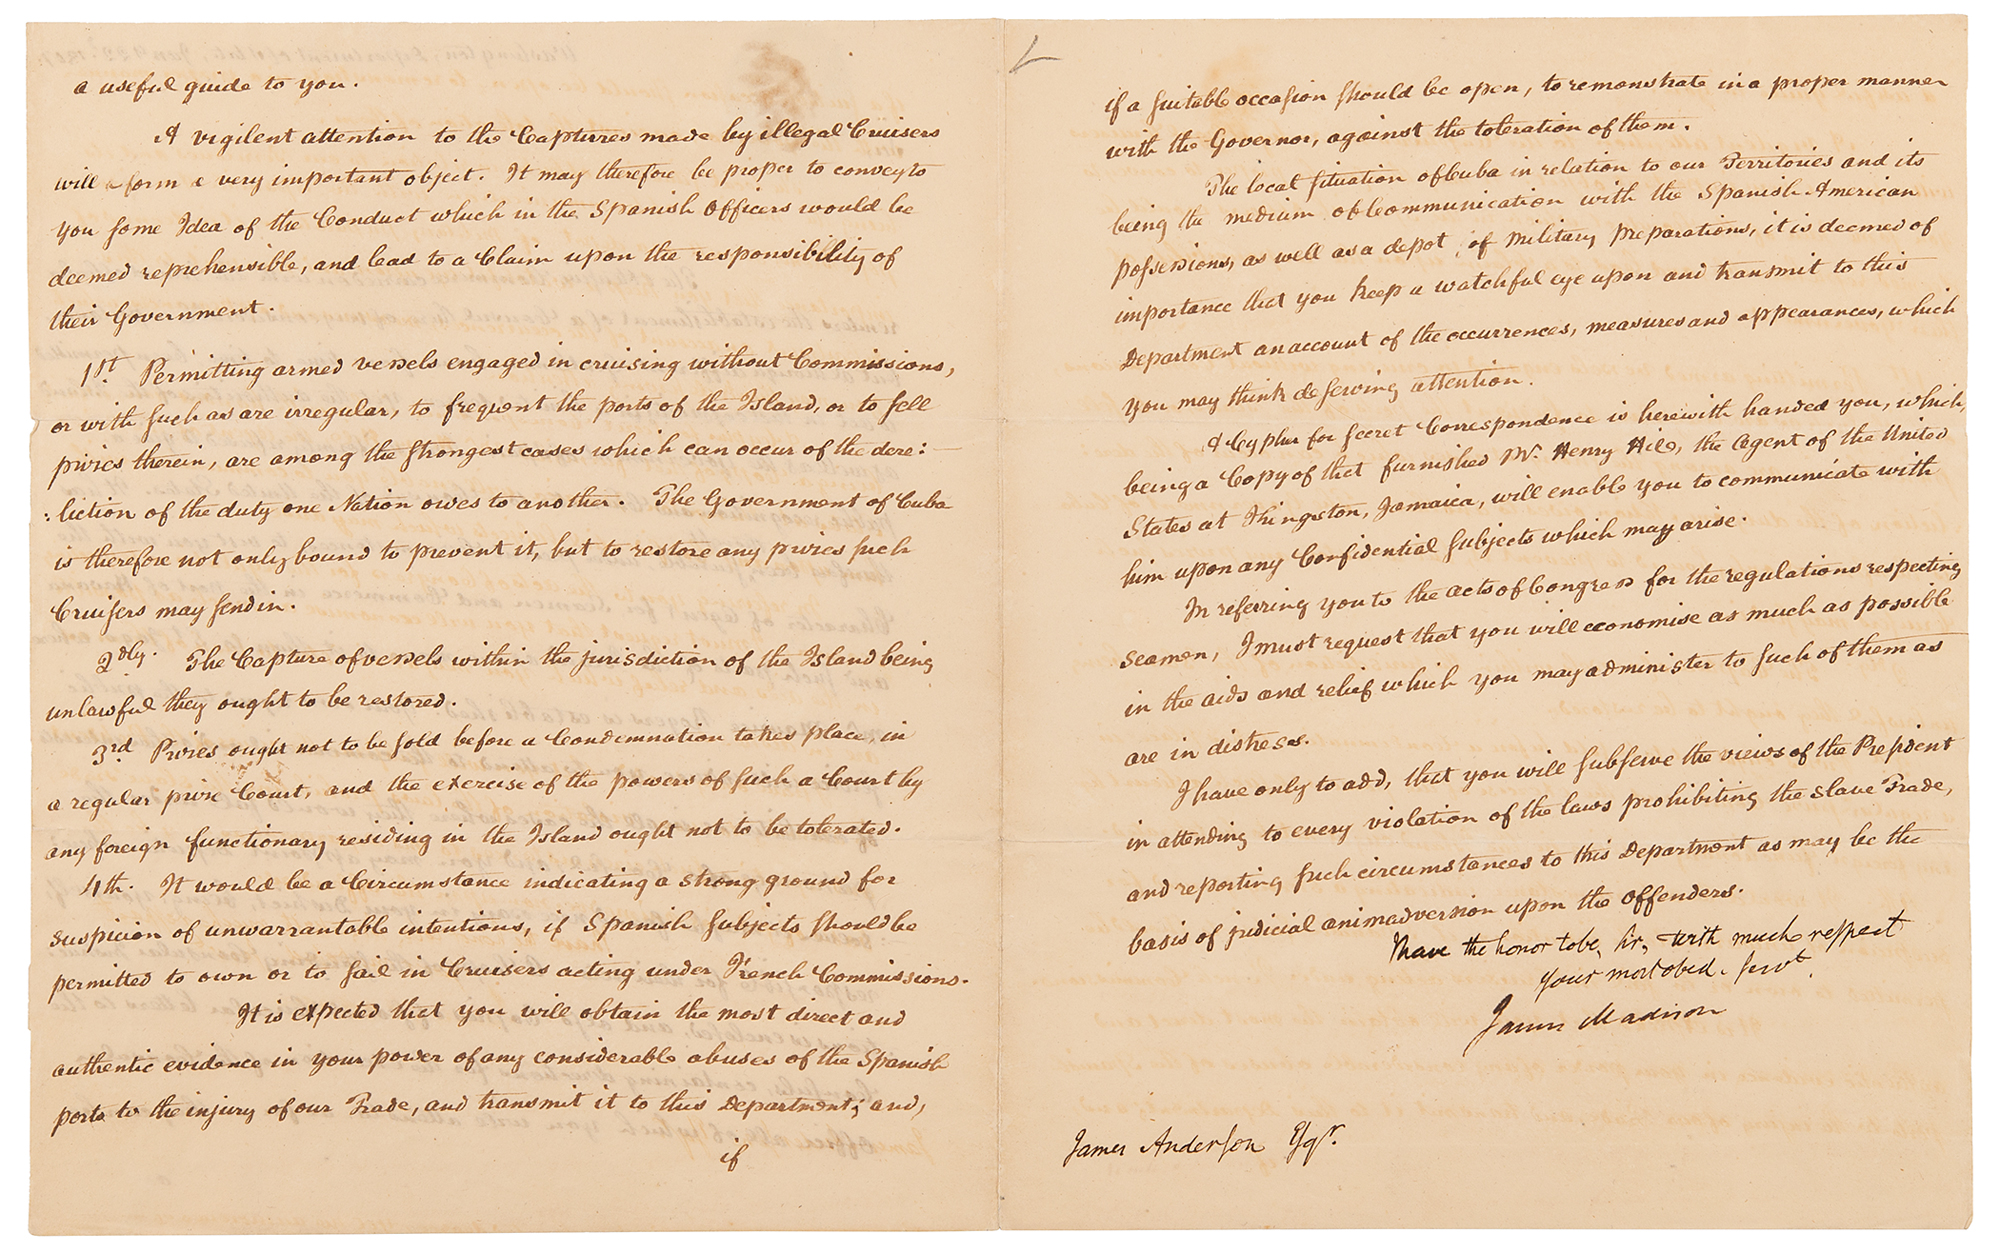 a useful guide to you.
A vigilent attention to the Captures made by illegal Cruisers
will form a very important object. It may therefore be proper to convey to
you some Idea of the Conduct which in the Spanish Officers would be
deemed reprehensible, and lead to a Claim upon the responsibility of
their Government.
1st. Permitting armed vessels engaged in cruising without Commissions,
or with such as are irregular, to frequent the ports of the Island, or to sell
prizes therein, are among the strongest cases which can occur of the dere:
:liction of the duty one Nation owes to another. The Government of Cuba
is therefore not only bound to prevent it, but to restore any prizes such
Cruisers may send in.
2dly. The Capture of vessels within the jurisdiction of the Island being
unlawful they ought to be restored.
3rd Prizes ought not to be sold before a Condemnation takes place, in
a regular prize Court, and the exercise of the powers of such a Court by
any foreign functionary residing in the Island ought not to be tolerated.
4th. It would be a Circumstance indicating a strong ground for
suspicion of unwarrantable intentions, if Spanish Subjects should be
permitted to own or to sail in Cruisers acting under French Commissions.
It is expected that you will obtain the most direct and
authentic evidence in your power of any considerable abuses of the Spanish
ports to the injury of our Trade, and transmit it to this Department; and,
if
if a suitable occasion should be open, to remonstrate in a proper manner
with the Governor, against the toleration of them.
The local situation of Cuba in relation to our Territories and its
being the medium of Communication with the Spanish American
possessions, as well as a depot of Military preparations, it is deemed of
importance that you keep a watchful eye upon and transmit to this
Department an account of the occurrences, measures and appearances, which
you may think deserving attention.
A Cypher for secret Correspondence is herewith handed you, which,
being a Copy of that furnished Mr. Henry Hill, the Agent of the United
States at Kingston, Jamaica, will enable you to communicate with
him upon any Confidential subjects which may arise.
In referring you to the acts of Congress for the regulations respecting
Seamen, I must request that you will economise as much as possible
in the aids and relief which you may administer to such of them as
are in distress.
I have only to add, that you will subserve the views of the President
in attending to every violation of the laws prohibiting the Slave Trade,
and reporting such circumstances to this Department as may be the
basis of judicial animadversion upon the offenders.
I have the honor to be, Sir, with much respect
Your most obed. servt.
James Madison
James Anderson Esqr.